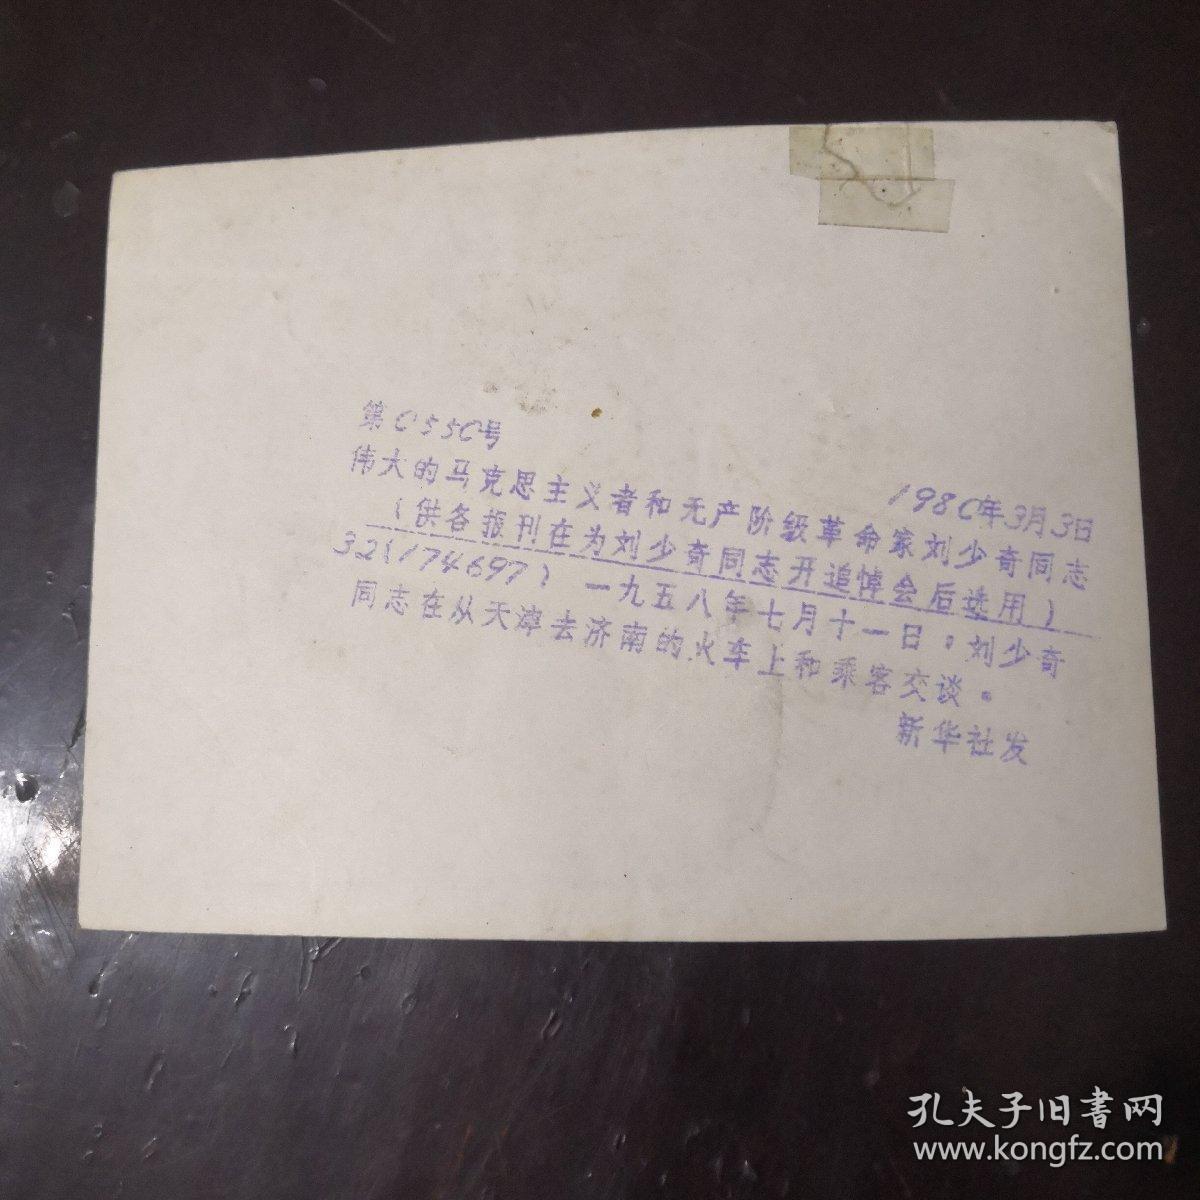 第0550号
1980年3月3日
伟大的马克思主义者和无产阶级革命家刘少奇同志
(供各报刊在为刘少奇同志开追悼会后选用)
32(174697) 一九五八年七月十一日，刘少奇
同志在从天津去济南的火车上和乘客交谈。
新华社发
孔夫子旧書网
www.kongfz.com